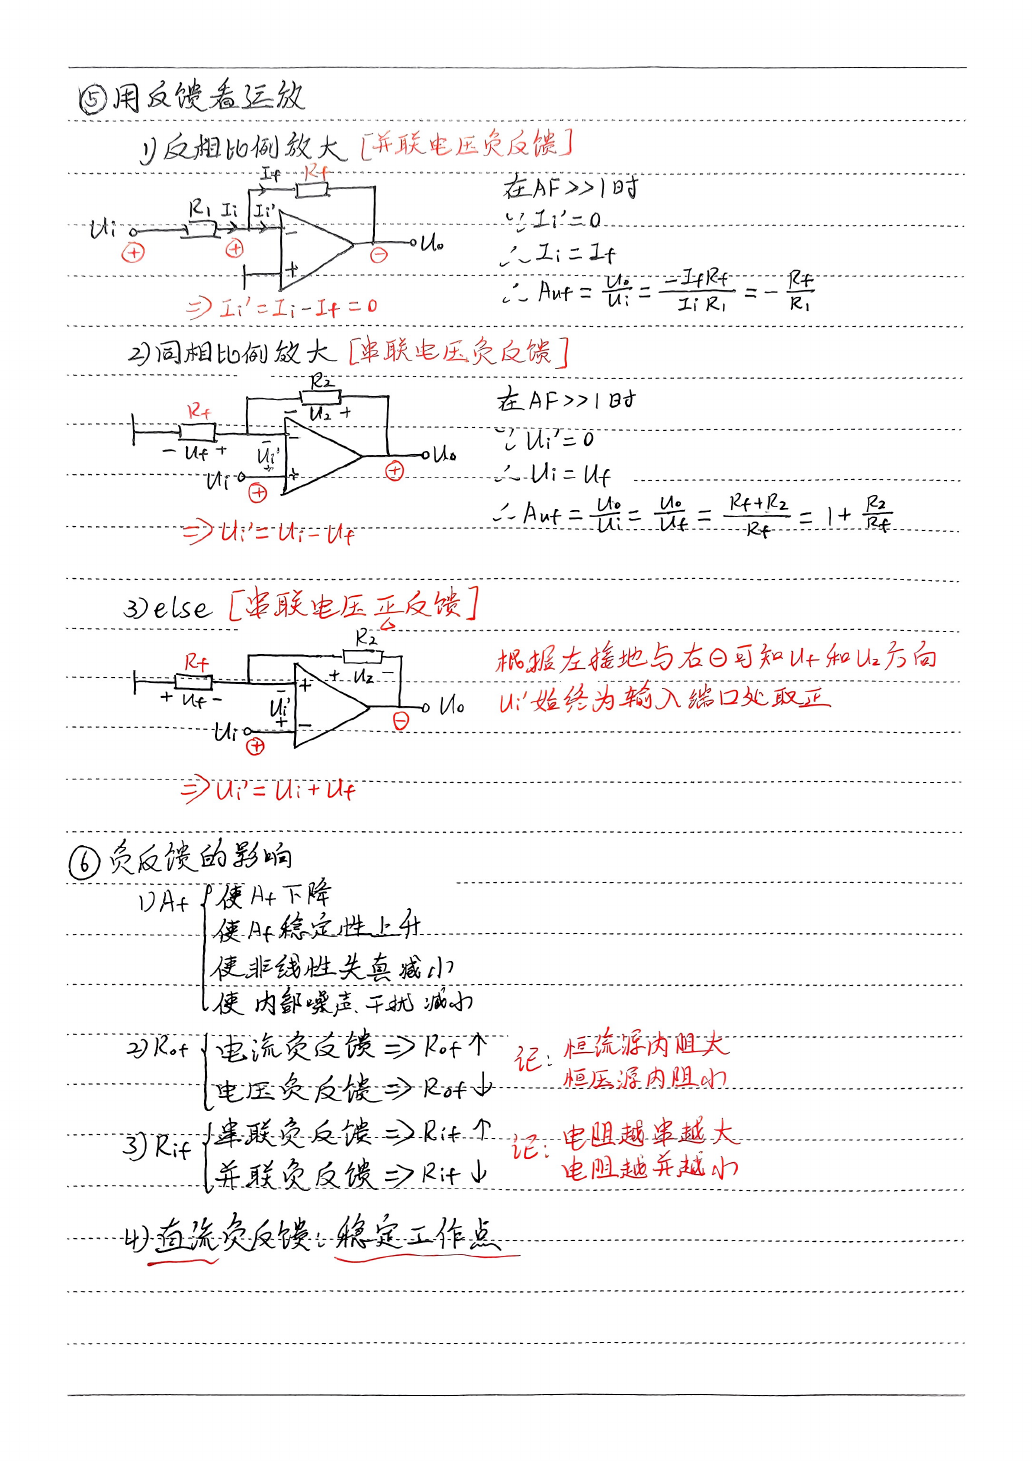 ⑤用反馈看运放
1)反相比例放大 [并联电压负反馈]
If Rf
Ui R1 Ii Ii' Uo
⇒ Ii'=Ii-If=0
在AF>>1时
∵ Ii'=0
∴ Ii=If
∴ Auf=Uo/Ui=-IfRf/IiR1=-Rf/R1
2)同相比例放大 [串联电压负反馈]
R2
Rf - U2 +
- Uf + Ui' Uo
Ui
⇒ Ui'=Ui-Uf
在AF>>1时
∵ Ui'=0
∴ Ui=Uf
∴ Auf=Uo/Ui=Uo/Uf=Rf+R2/Rf=1+R2/Rf
3)else [串联电压正反馈]
R2
Rf + U2 -
+ Uf - Ui' Uo
Ui
⇒ Ui'=Ui+Uf
根据左接地与右⊖可知Uf和U2方向
Ui'始终为输入端口处取正
⑥负反馈的影响
1)Af 使Af下降
使Af稳定性上升
使非线性失真减小
使内部噪声、干扰减小
2)Rof 电流负反馈⇒Rof↑
电压负反馈⇒Rof↓
记: 恒流源内阻大
恒压源内阻小
3)Rif 串联负反馈⇒Rif↑
并联负反馈⇒Rif↓
记: 电阻越串越大
电阻越并越小
4)直流负反馈: 稳定工作点